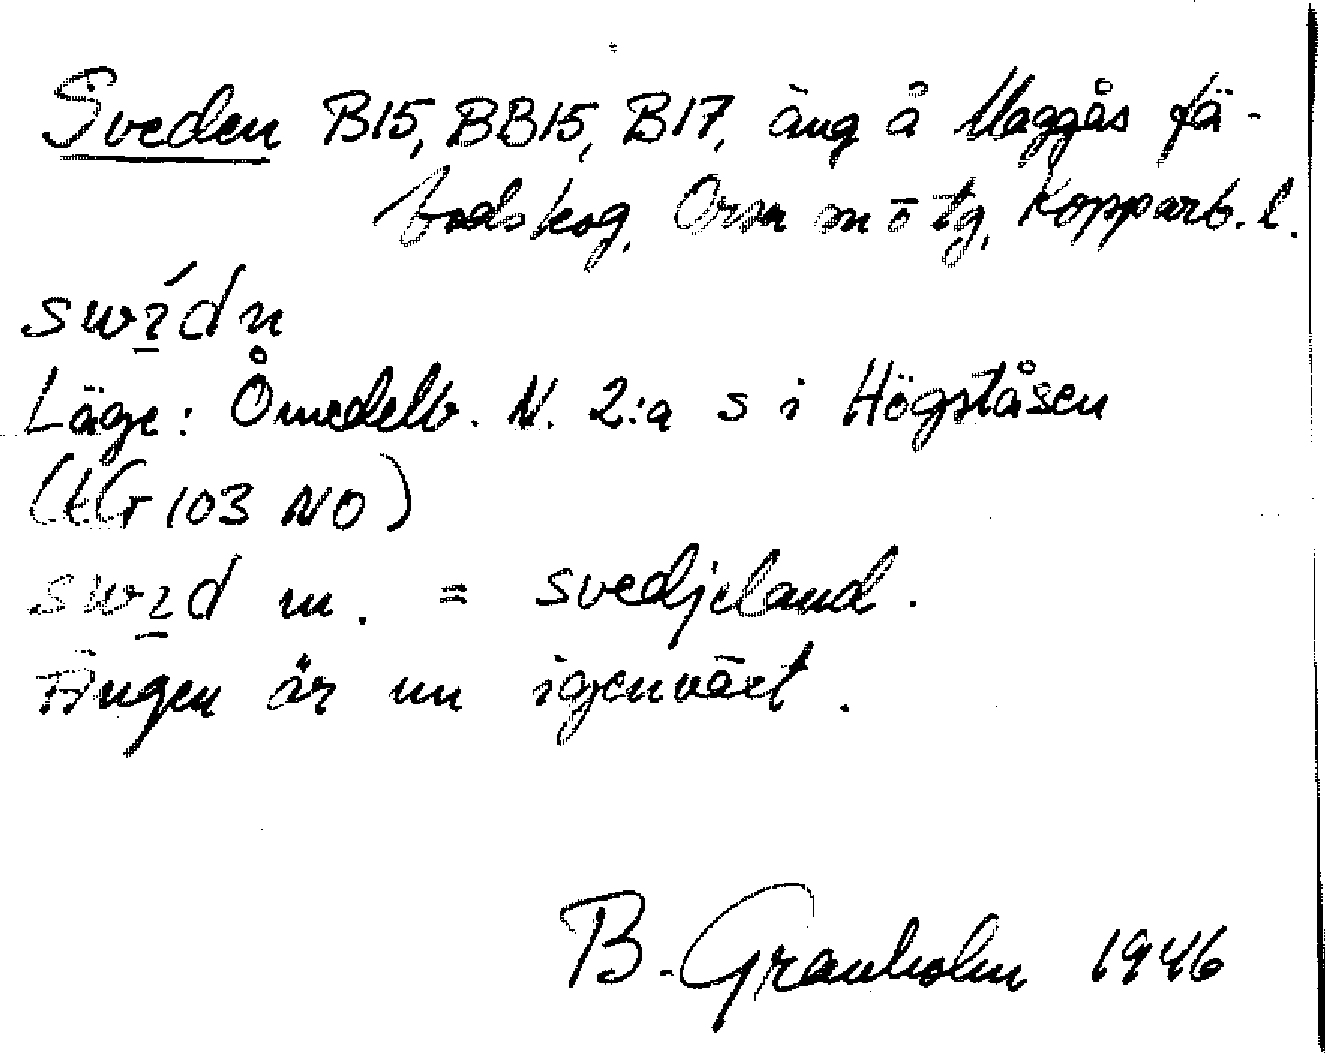 Sveden B15, BB15, B17, äng å Maggås fä-
bodskog, Orsa sn o tg, Kopparb. l.
Läge: Omedelb. N. 2:a s i Högståsen
(EG 103 NO)
m. = svedjeland.
Ängen är nu igenväxt.
B. Granholm 1946